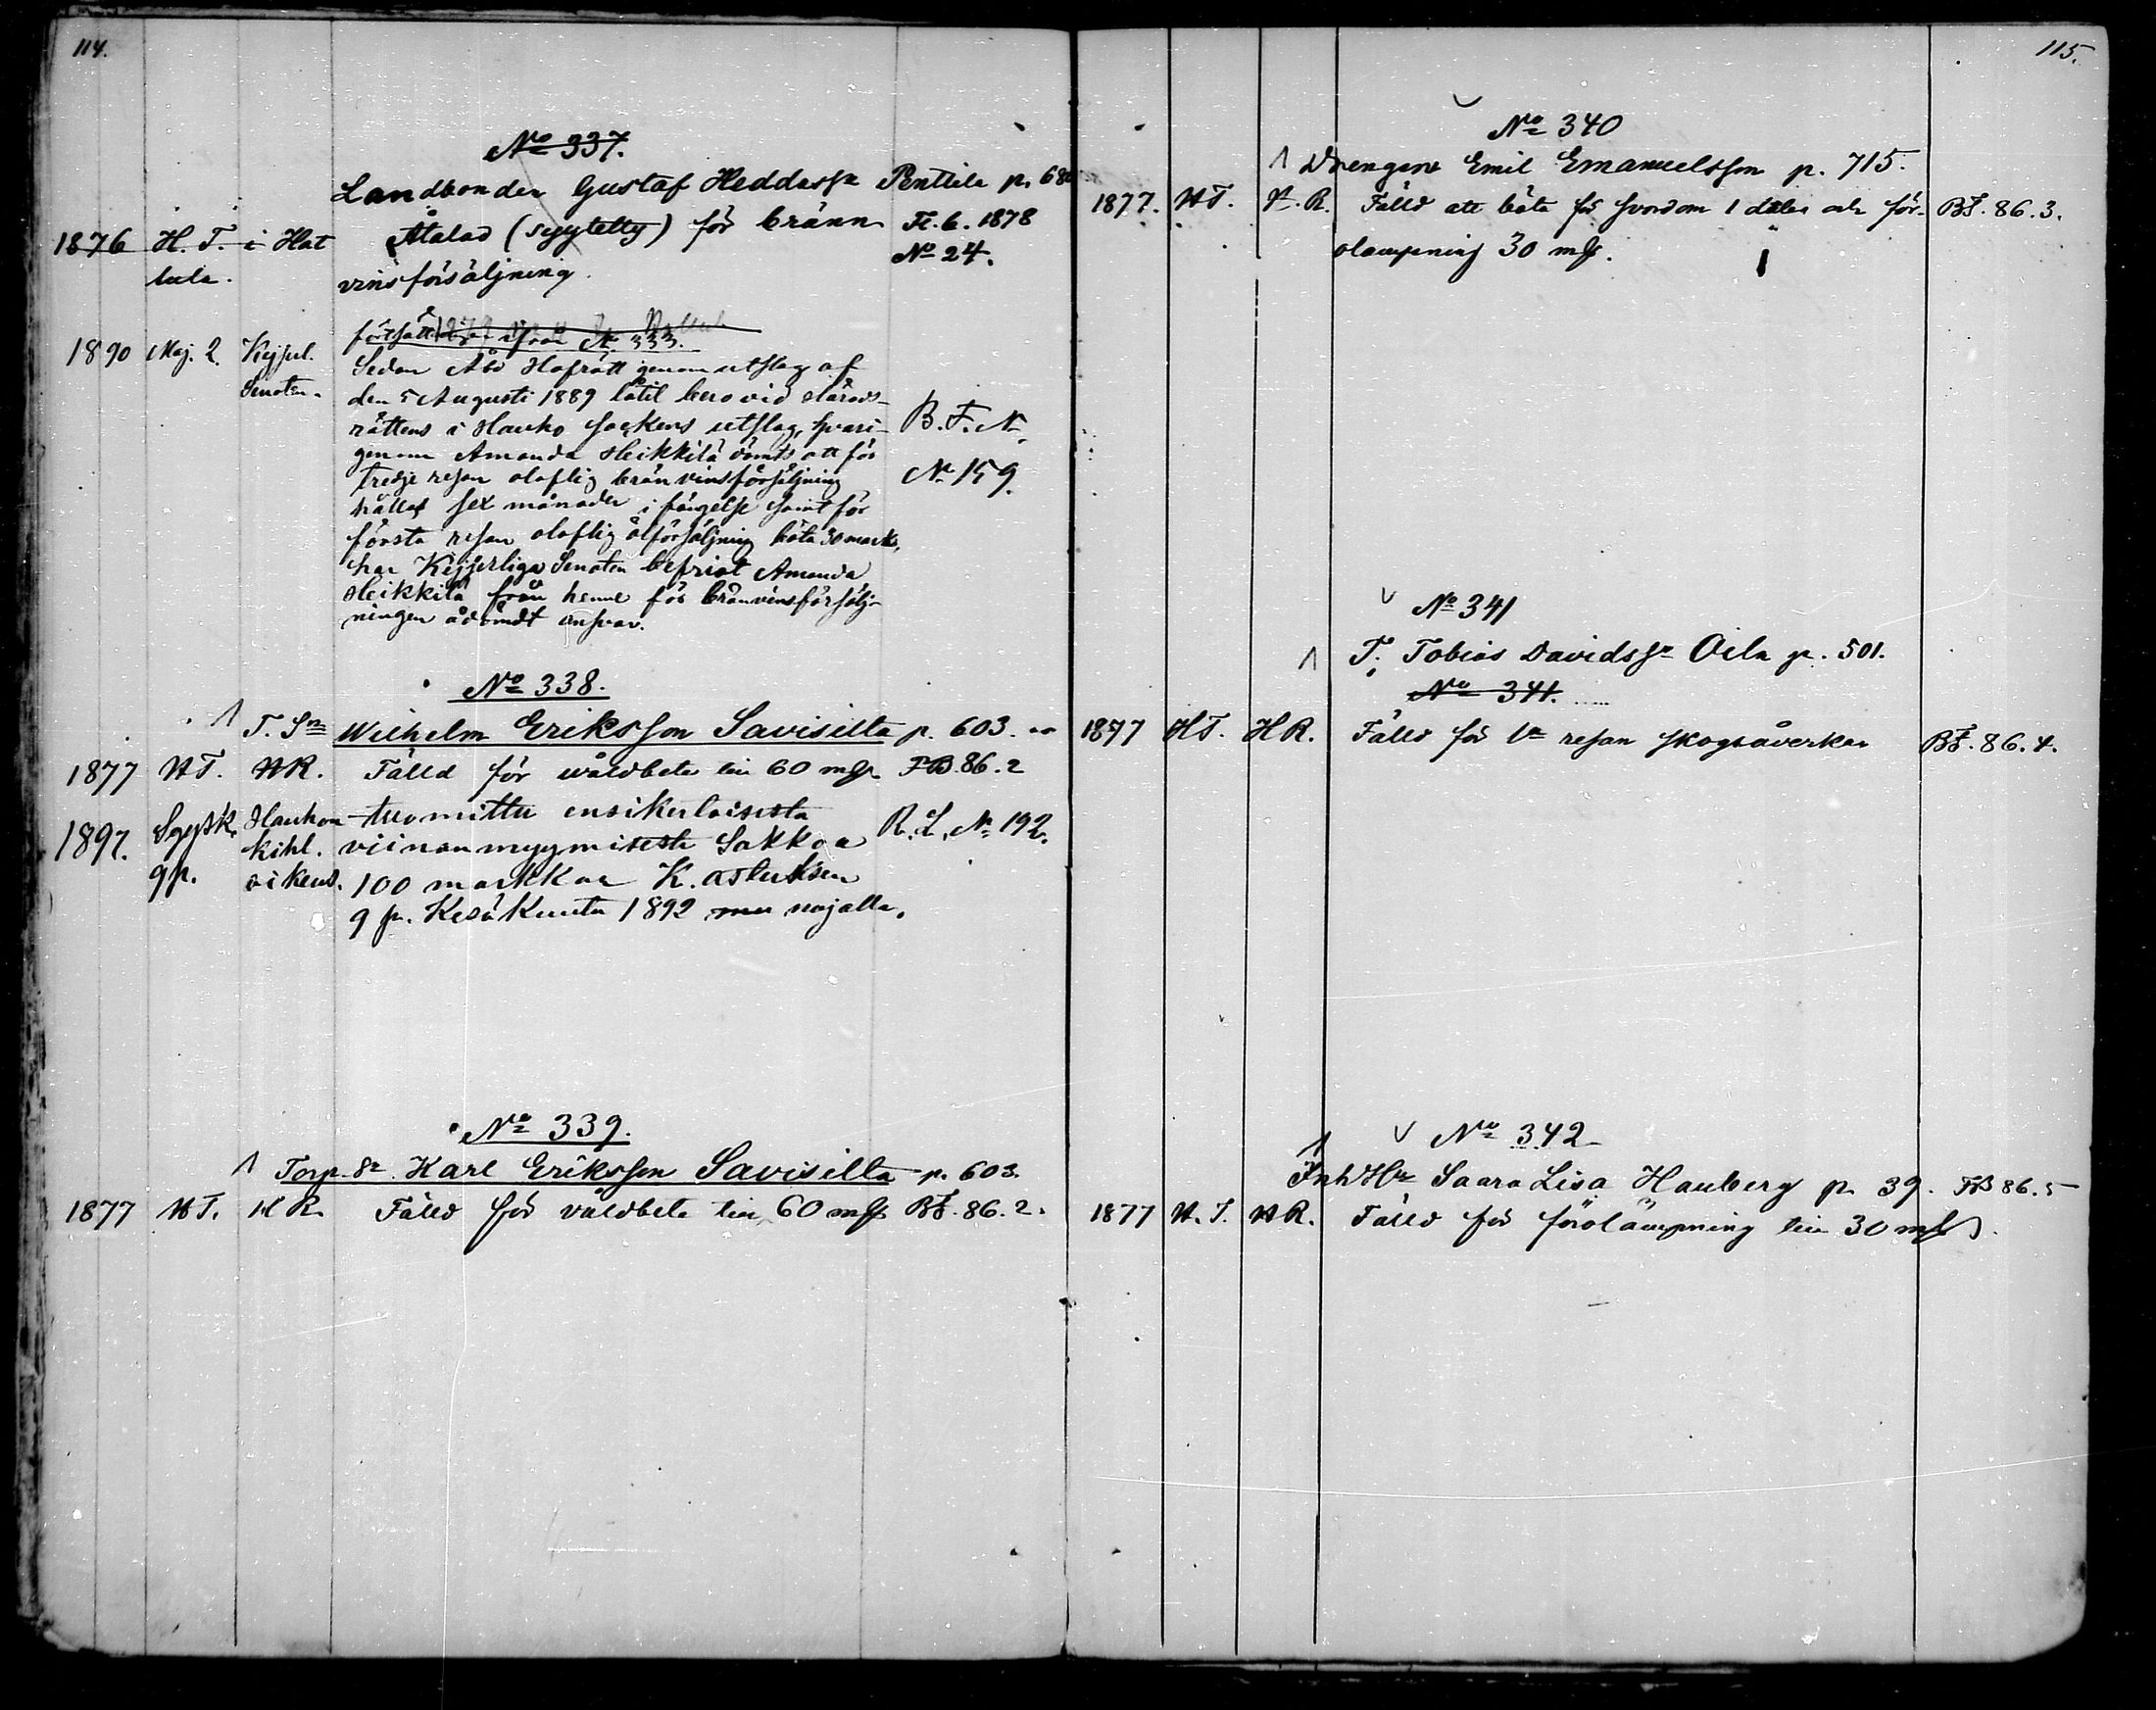 114.
No 337.
Landbonden Gustaf Heddassn Penttila p. 68
1876 H. T. i Hat
tula.
Åtalad (syytetty) för bränn
vinsförsäljning.
Ft. 6. 1878
No 24.
fortsättning ifrån No 333.
1890 Maj. 2. Kejserl.
Senaten.
Sedan Åbo Hofrätt genom utslag af
den 5 Augusti 1889 låtit bero vid Härads-
rättens i Hauho sockens utslag, hvari-
genom Amanda Heikkilä dömts att för
tredje resan olaflig bränvinsförsäljning
hållas sex månader i fängelse samt för
första resan olaflig ölförsäljning böta 30 mark,
har Kejserliga Senaten befriat Amanda
Heikkilä från henne för bränvinsförsälj-
ningen ådömdt ansvar.
B. F. N.
No 159.
No 338.
T. Sn Wilhelm Eriksson Savisilta p. 603.
1877 HT. HR. Fälld för våldbeta till 60 mk FB. 86. 2
1897. Syysk. 9 p. Hauhon kihl. oikeud.
tuomittu ensikertaisesta
viinanmyymisestä Sakkoa
100 markkaa K. asetuksen
9 p. Kesäkuuta 1892 nojalla.
R. L. No 192.
No 339.
Torp. Sn. Karl Eriksson Savisilta p. 603.
1877 HT. HR. Fälld för våldbeta till 60 mk BF. 86. 2.
115.
No 340
Drengen Emil Emanuelsson p. 715.
1877. HT. H. R. Fälld att böta för svordom 1 daler och för-
olämpning 30 mk.
BF. 86. 3.
No 341
T. Tobias Davidssn Oila p. 501.
No 341.
1877 HT. HR. Fälld för 1a resan skogsåverkan BF. 86. 4.
No 342
Inh Hu Saara Lisa Hauberg p. 39. FB 86. 5
1877 H. T. HR. Fälld för förolämpning till 30 mk